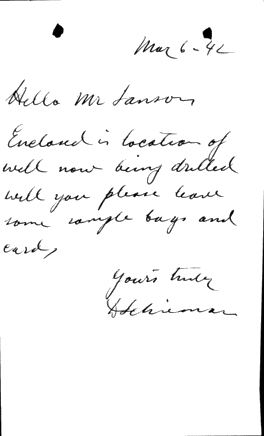 Mar 6-42
Hello Mr Sanson
Enclosed is location of
well now being drilled
will you please leave
some sample bags and
cards
Yours truly